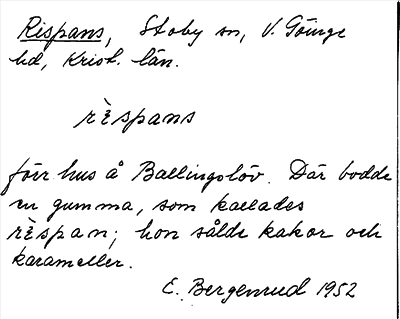 Rispans, Stoby sn, V. Göinge
hd, Krist. län.
rèspans
förr hus å Ballingslöv. Där bodde
en gumma, som kallades
rèspan; hon sålde kakor och
karameller.
E. Bergenrud 1952